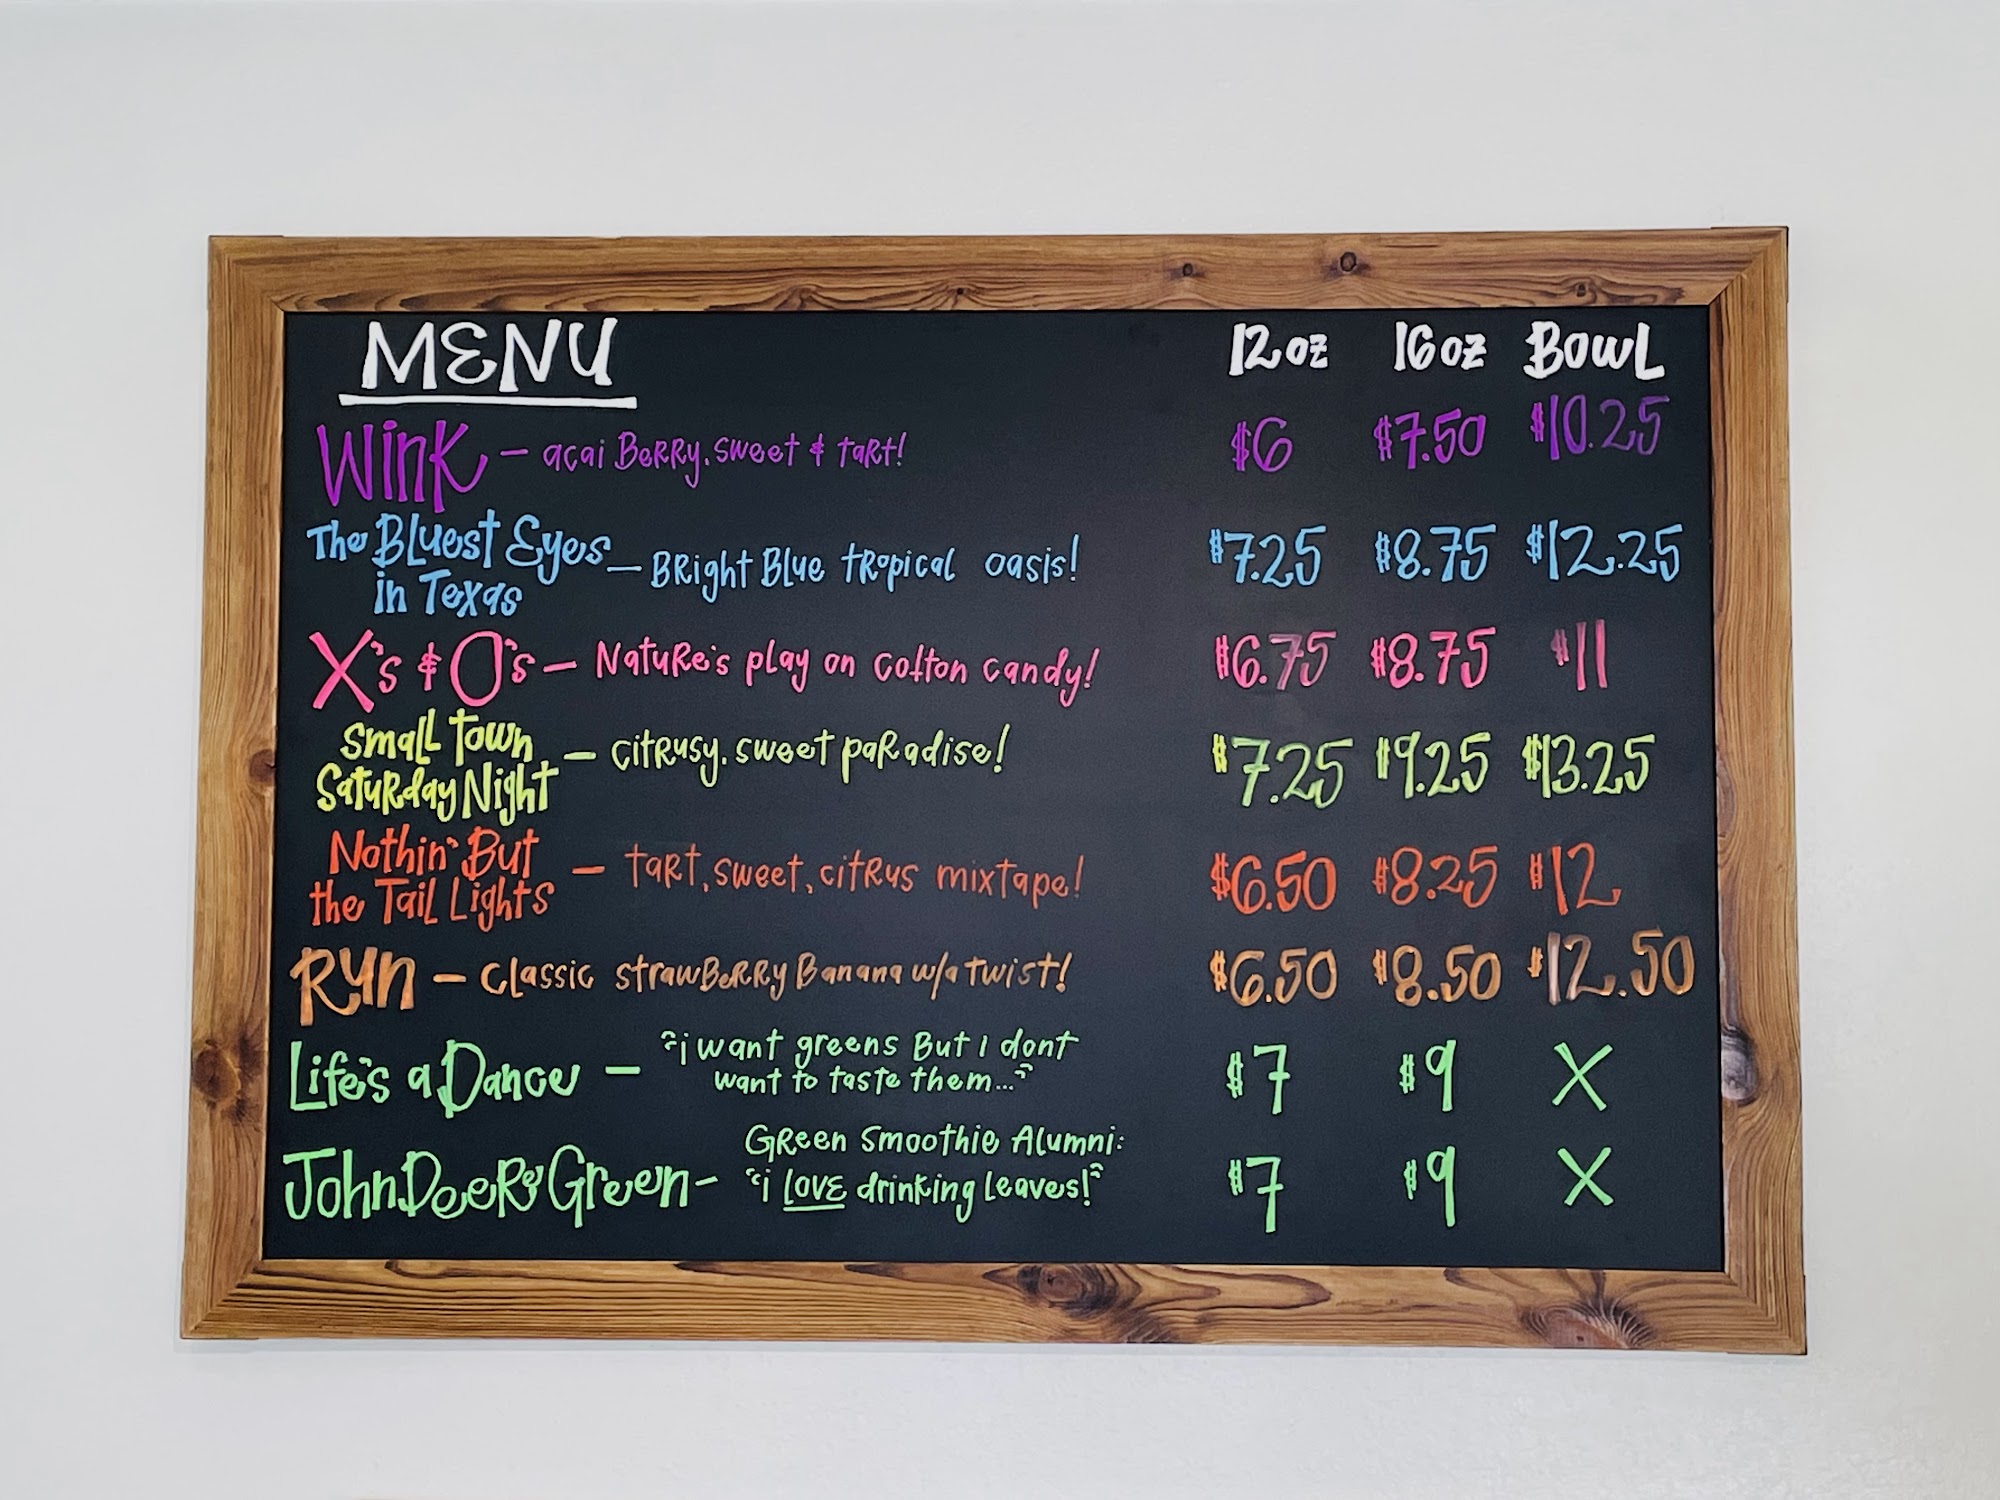 MENU 12oz 16oz BOWL
Wink – acai Berry, sweet & tart! $6 $7.50 $10.25
The Bluest Eyes
in Texas – Bright Blue tropical oasis! $7.25 $8.75 $12.25
X's & O's – Nature's play on cotton candy! $6.75 $8.75 $11
Small Town
Saturday Night – citrusy, sweet paradise! $7.25 $9.25 $13.25
Nothin' But
the Tail Lights – tart, sweet, citrus mixtape! $6.50 $8.25 $12
Ryn – classic strawBerry Banana w/a twist! $6.50 $8.50 $12.50
Life's a Dance – "i want greens But I dont
want to taste them..." $7 $9 X
Green Smoothie Alumni:
John Deere Green – "i LOVE drinking leaves!" $7 $9 X